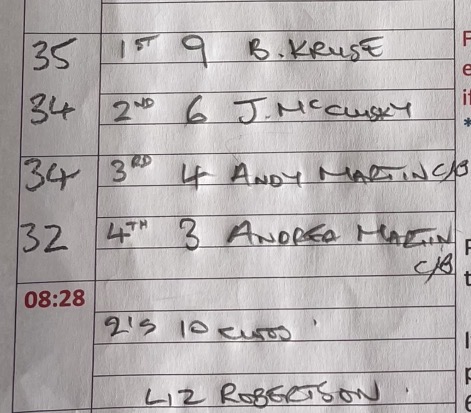 35 1ST 9 B. KRUSE
34 2ND 6 J. McCLUSKY
34 3RD 4 ANDY MARTIN C/B
32 4TH 3 ANDREA MARTIN
C/B
08:28
2'S 10 euros
LIZ ROBERTSON